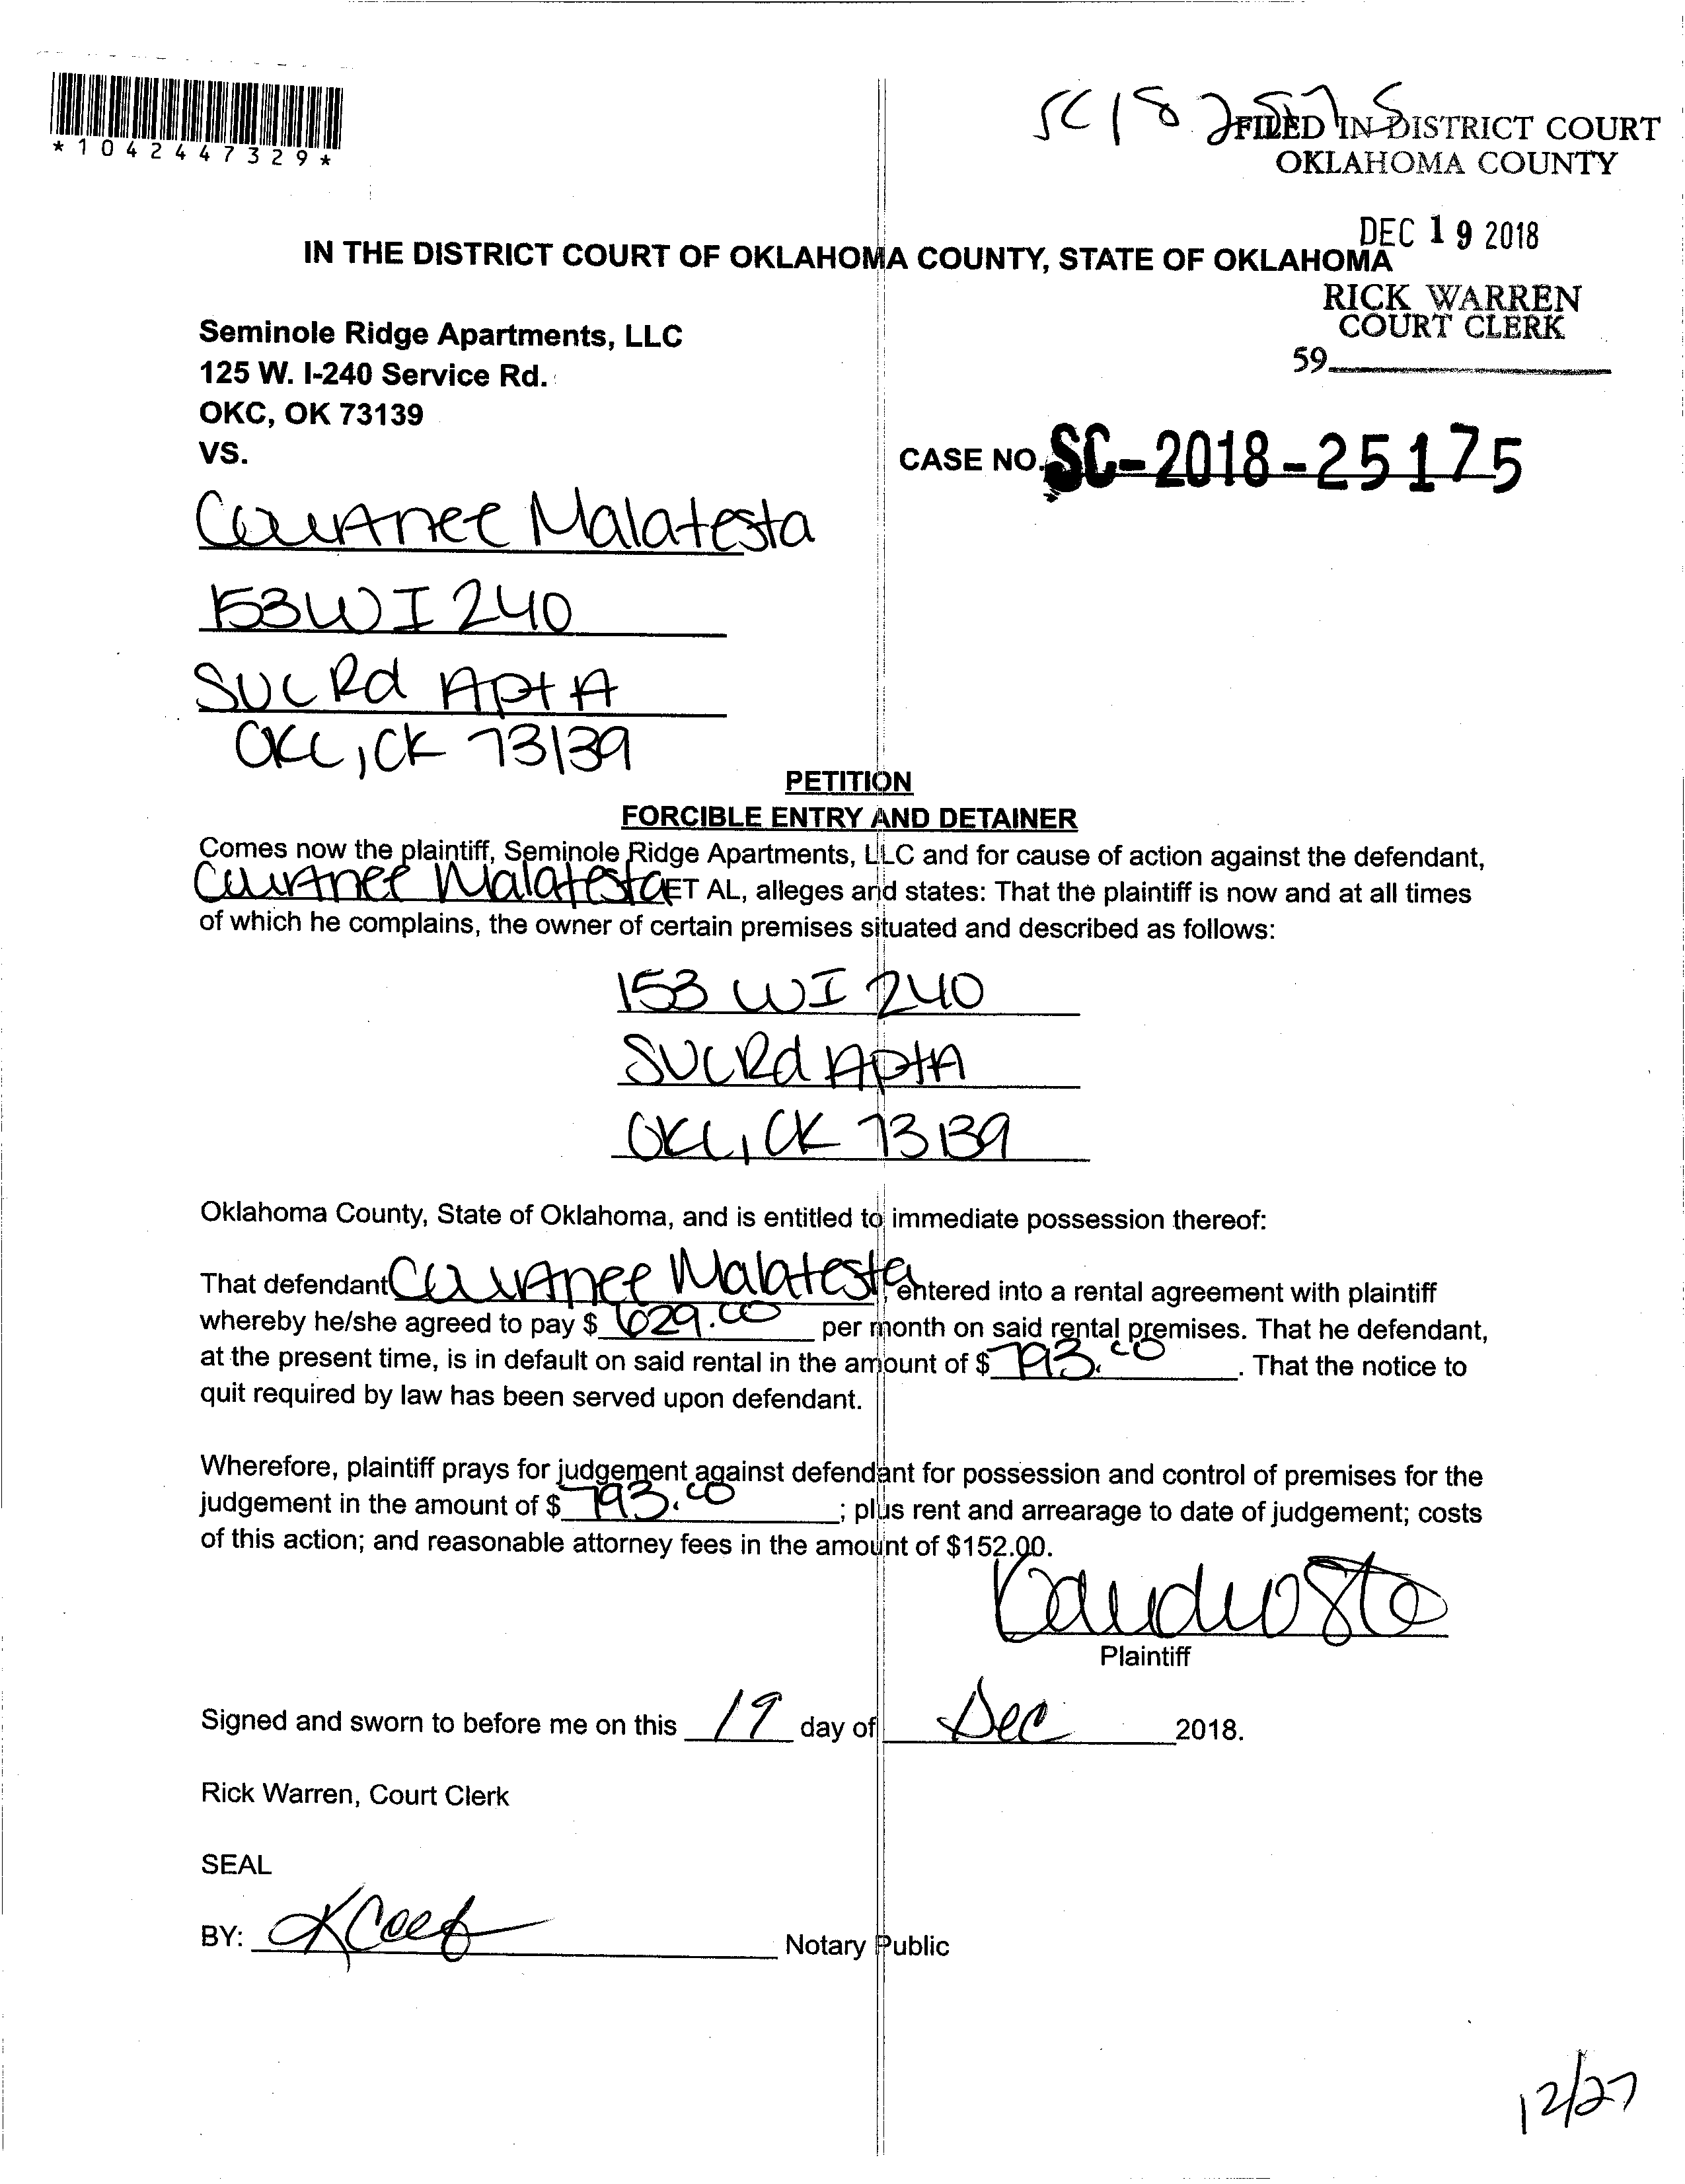 *1042447329*
FILED IN DISTRICT COURT
OKLAHOMA COUNTY
DEC 19 2018
IN THE DISTRICT COURT OF OKLAHOMA COUNTY, STATE OF OKLAHOMA
RICK WARREN
COURT CLERK
59
Seminole Ridge Apartments, LLC
125 W. I-240 Service Rd.
OKC, OK 73139
VS.
CASE NO. SC-2018-25175
Courtnee Malatesta
153 W I 240
SVC Rd Apt A
OKC, OK 73139
PETITION
FORCIBLE ENTRY AND DETAINER
Comes now the plaintiff, Seminole Ridge Apartments, LLC and for cause of action against the defendant,
Courtnee Malatesta ET AL, alleges and states: That the plaintiff is now and at all times
of which he complains, the owner of certain premises situated and described as follows:
153 W I 240
SVC Rd Apt A
OKC, OK 73139
Oklahoma County, State of Oklahoma, and is entitled to immediate possession thereof:
That defendant Courtnee Malatesta, entered into a rental agreement with plaintiff
whereby he/she agreed to pay $ 629.00 per month on said rental premises. That he defendant,
at the present time, is in default on said rental in the amount of $ 793.00. That the notice to
quit required by law has been served upon defendant.
Wherefore, plaintiff prays for judgement against defendant for possession and control of premises for the
judgement in the amount of $ 793.00; plus rent and arrearage to date of judgement; costs
of this action; and reasonable attorney fees in the amount of $152.00.
Plaintiff
Signed and sworn to before me on this 19 day of Dec 2018.
Rick Warren, Court Clerk
SEAL
BY: Notary Public
12/27